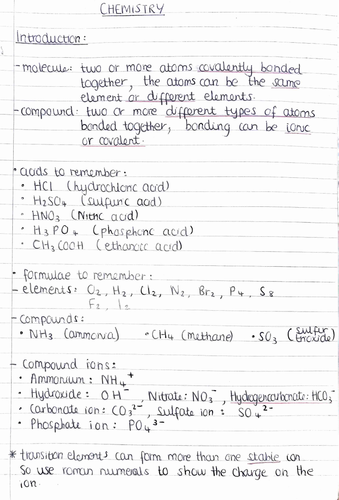 CHEMISTRY
Introduction:
- molecule: two or more atoms covalently bonded
together, the atoms can be the same
element or different elements.
- compound: two or more different types of atoms
bonded together, bonding can be ionic
or covalent.
• acids to remember:
• HCl (hydrochloric acid)
• H₂SO₄ (sulfuric acid)
• HNO₃ (Nitric acid)
• H₃PO₄ (phosphoric acid)
• CH₃COOH (ethanoic acid)
• formulae to remember:
- elements: O₂, H₂, Cl₂, N₂, Br₂, P₄, S₈
F₂, I₂
- compounds:
• NH₃ (ammonia) • CH₄ (methane) • SO₃ (sulfur trioxide)
- Compound ions:
• Ammonium: NH₄⁺
• Hydroxide: OH⁻, Nitrate: NO₃⁻, Hydrogencarbonate: HCO₃⁻
• Carbonate ion: CO₃²⁻, Sulfate ion: SO₄²⁻
• Phosphate ion: PO₄³⁻
* transition elements can form more than one stable ion
so use roman numerals to show the charge on the
ion.